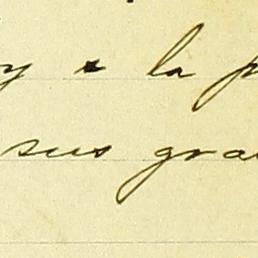 y a la p
sus gra